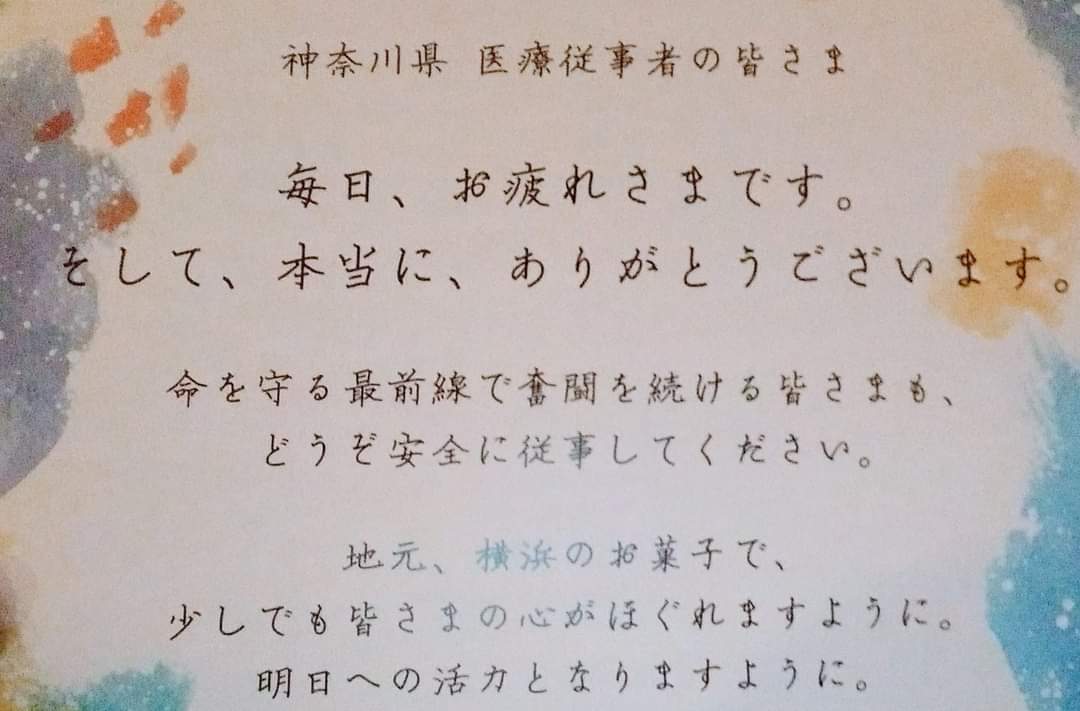 神奈川県 医療従事者の皆さま
毎日、お疲れさまです。
そして、本当に、ありがとうございます。
命を守る最前線で奮闘を続ける皆さまも、
どうぞ安全に従事してください。
地元、横浜のお菓子で、
少しでも皆さまの心がほぐれますように。
明日への活力となりますように。